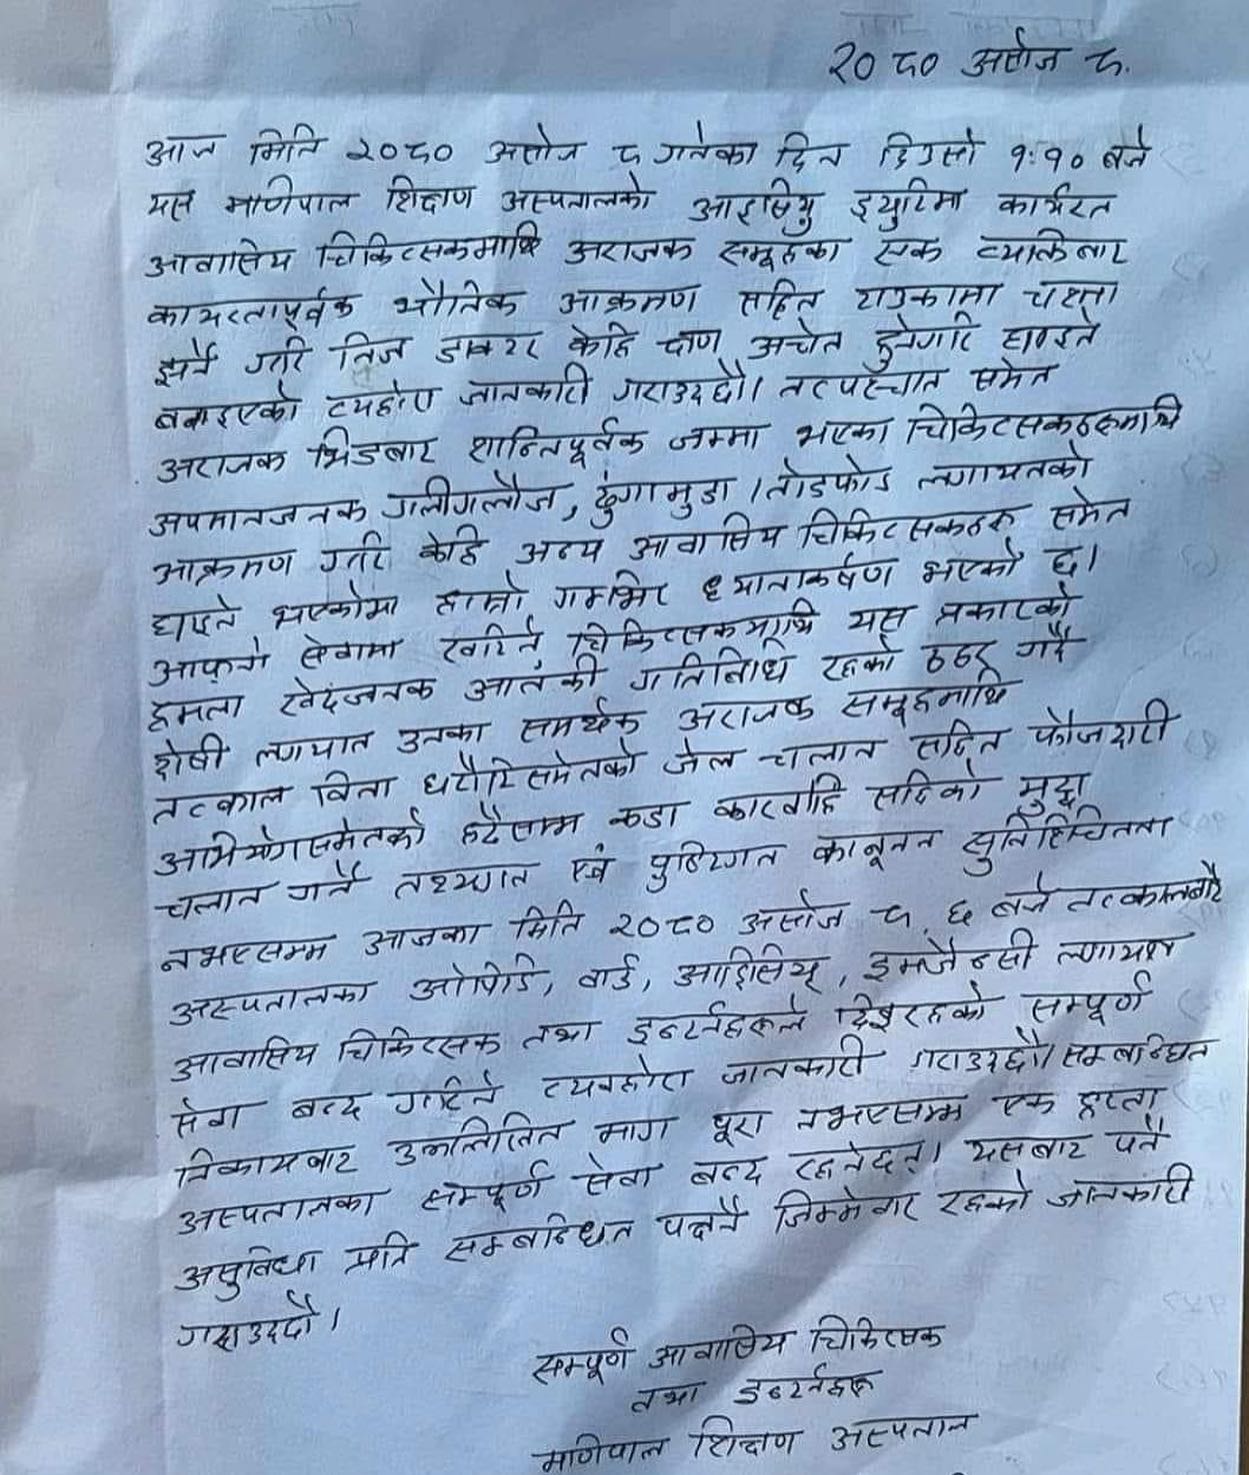 २०८० असोज ८.
आज मिति २०८० असोज ८ गतेका दिन दिउसो १:१० बजे
यस मणिपाल शिक्षण अस्पतालको आइसियु इयुटिमा कार्यरत
आवासिय चिकित्सकमाथि अराजक समूहका एक व्यक्तिबाट
कायरतापूर्वक भौतिक आक्रमण सहित टाउकामा चस्मा
झर्ने गरि निज डाक्टर केहि क्षण अचेत हुनेगरि घाइते
बनाइएको व्यहोरा जानकारी गराउदछौ। तत्पश्चात समेत
अराजक भिडबाट शान्तिपूर्वक जम्मा भएका चिकित्सकहरुमाथि
अपमानजनक गालीगलौज, ढुंगामुडा / तोडफोड लगायतको
आक्रमण गरि केहि अन्य आवासिय चिकित्सकहरु समेत
घाइते भएकोमा हाम्रो गम्भिर ध्यानाकर्षण भएको छ।
आफ्नो सेवामा खटिने चिकित्सकमाथि यस प्रकारको
हमला खेदजनक आतंकी गतिविधि रहको ठहर गर्दै
दोषी लगायत उनका समर्थक अराजक समूहमाथि
तत्काल विना धरौटिसमेतको जेल चलान सहित फौजदारी
अभियोगसमेतको हदैसम्म कडा कारवाहि सहितको मुद्दा
चलान गर्ने तथ्यगत एवं पुष्टिगत कानूनन सुनिश्चितता
नभएसम्म आजका मिति २०८० असोज ८ ६ बजे तत्कालबाटै
अस्पतालका ओपिडि, वार्ड, आइसियू, इमर्जेन्सी लगायत
आवासिय चिकित्सक तथा इन्टर्नहरुले दिइरहको सम्पूर्ण
सेवा बन्द गरिने व्यवहोरा जानकारी गराउदछौ। सम्बन्धित
निकायबाट उल्लिखित माग पूरा नभएसम्म एक हप्ता
अस्पतालका सम्पूर्ण सेवा बन्द रहनेछन्। यसबाट पर्ने
असुविधा प्रति सम्बन्धित पक्षनै जिम्मेवार रहको जानकारी
गराउदछौ।
सम्पूर्ण आवासिय चिकित्सक
तथा इन्टर्नहरू
मणिपाल शिक्षण अस्पताल